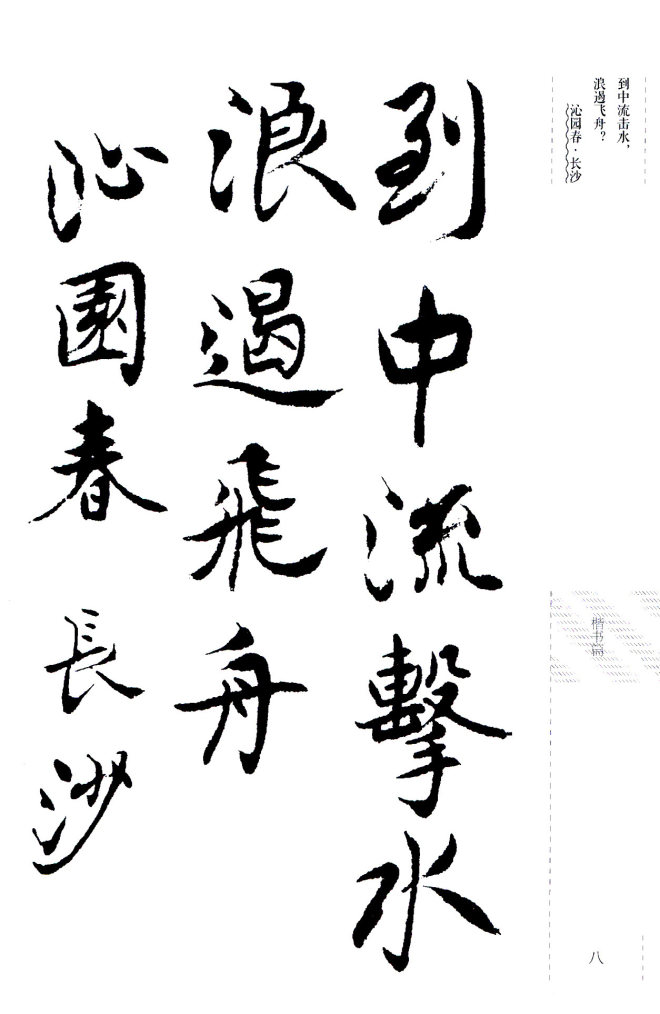 到中流击水，
浪遏飞舟？
沁园春·长沙
到中流擊水
浪遏飛舟
沁園春 長沙
楷书篇
八